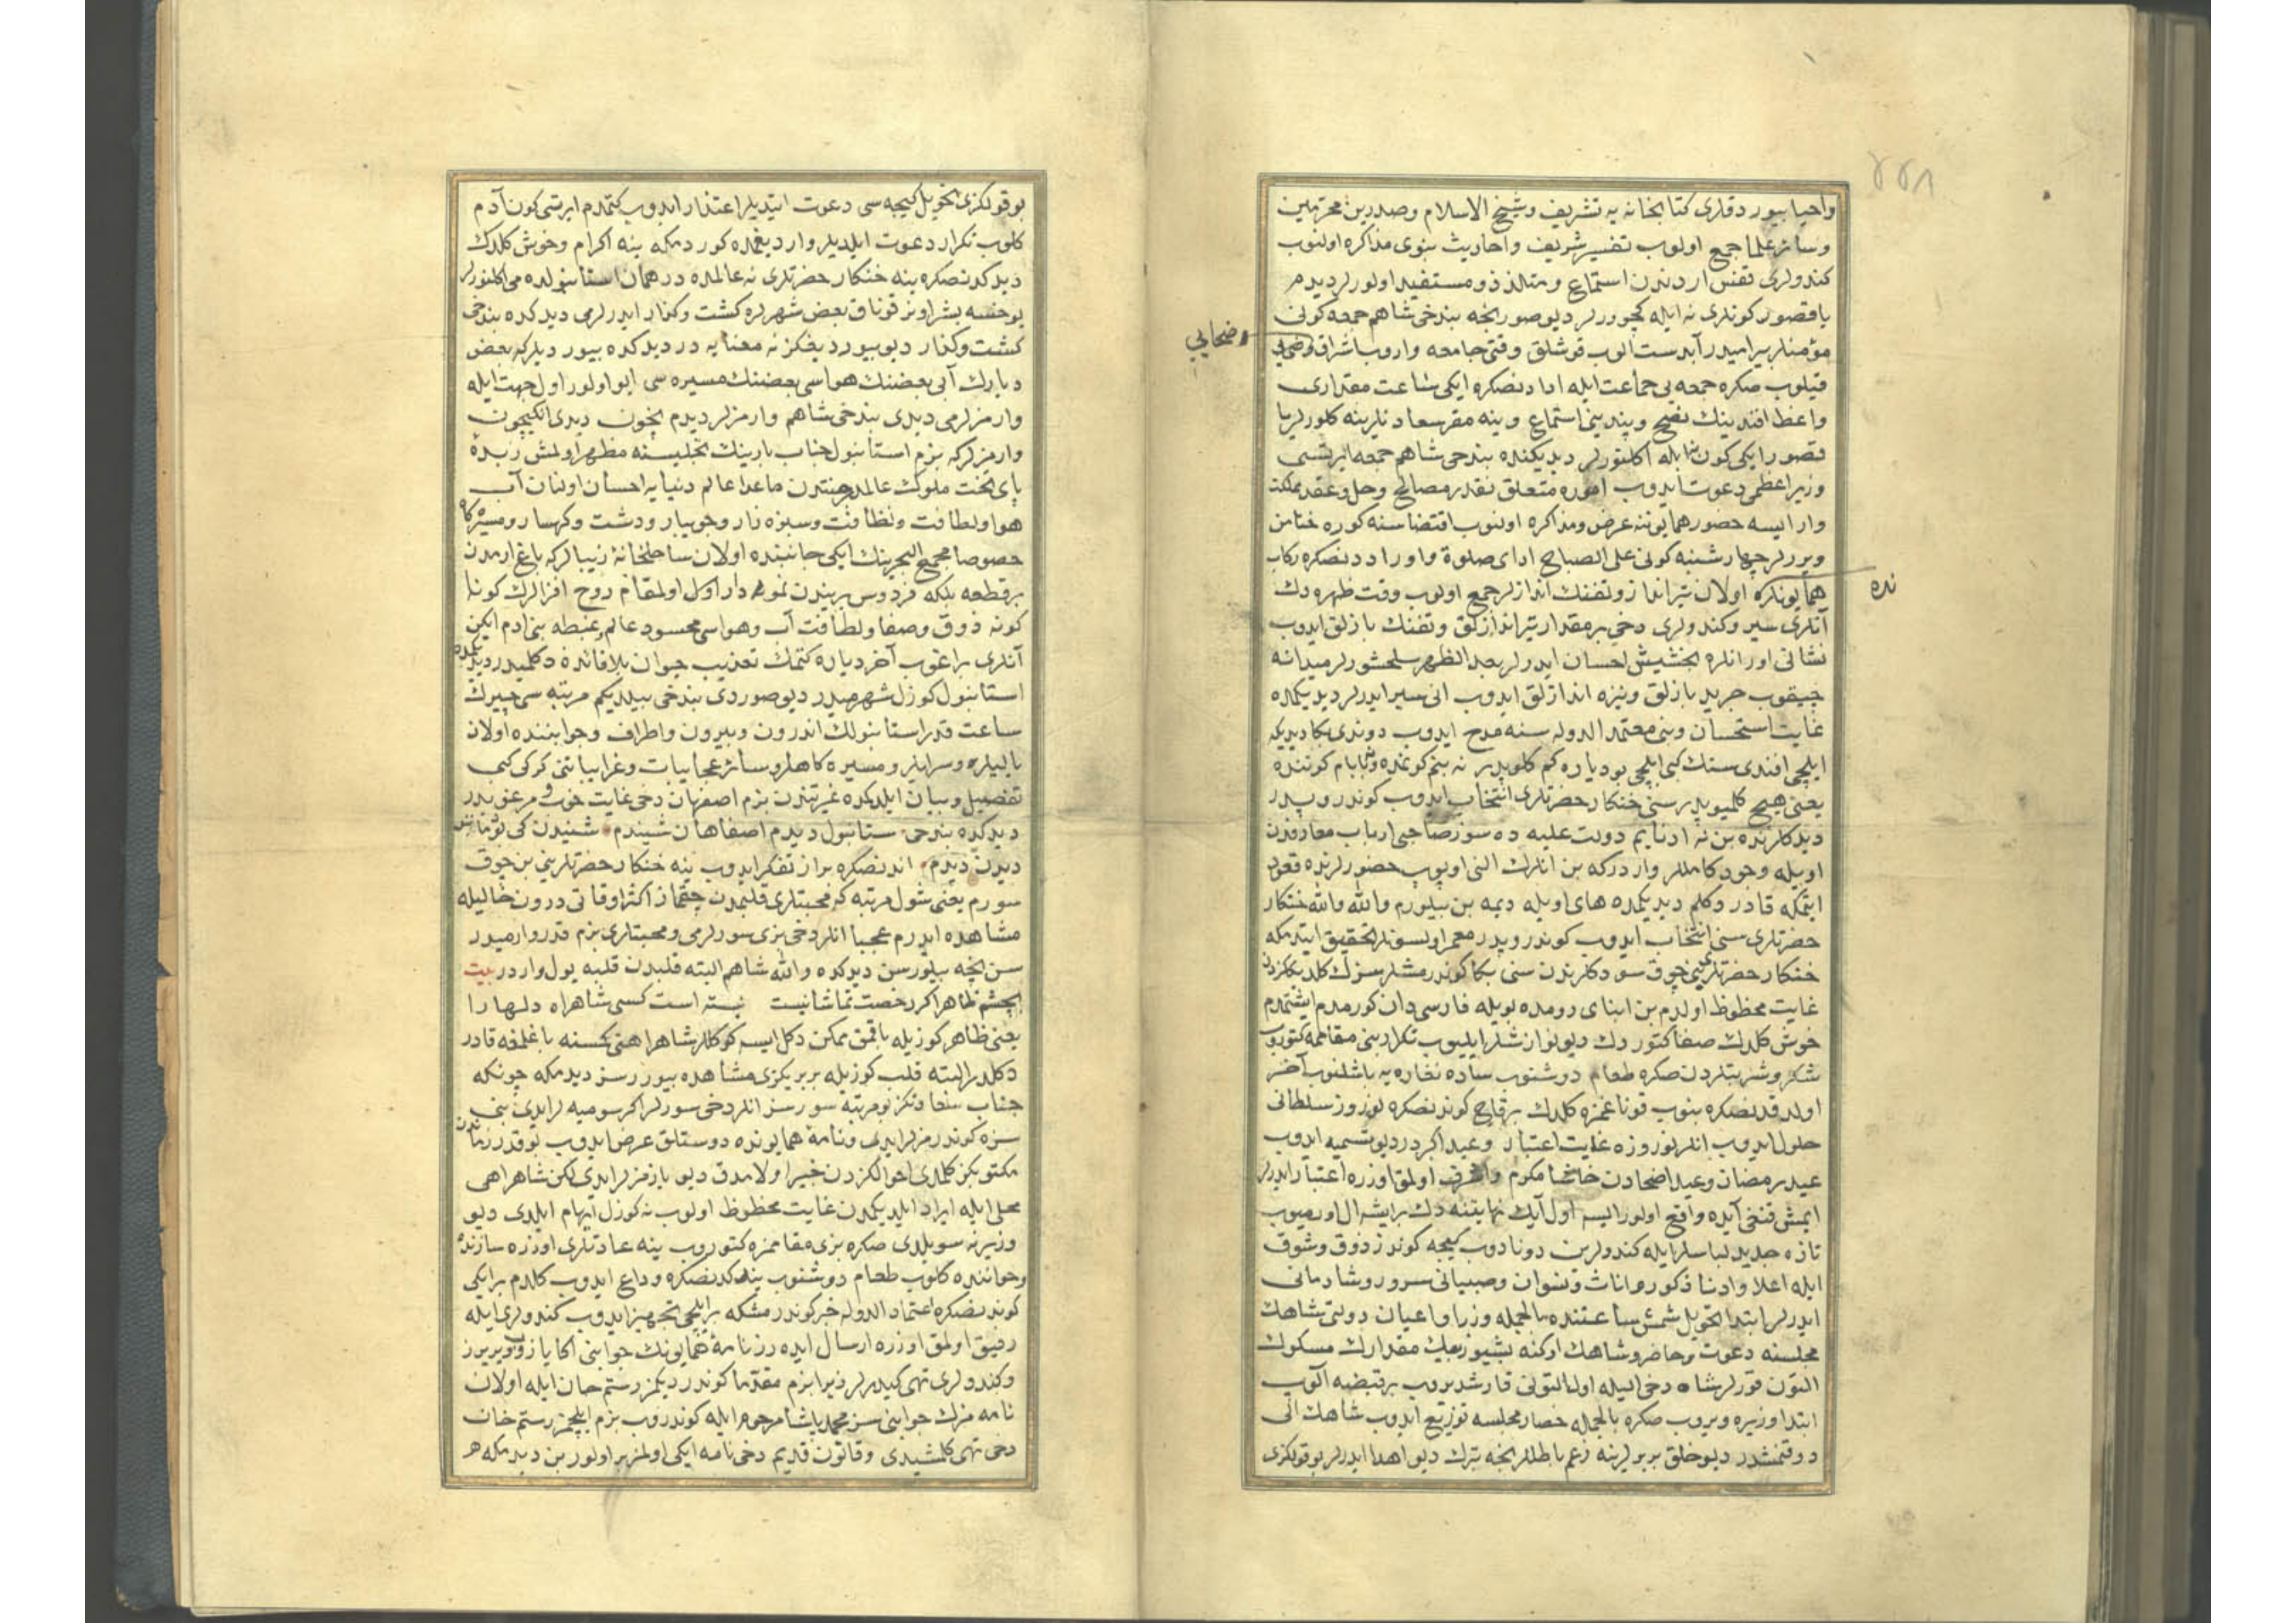 واحیا بیوردقلری کتابخانه یه تشریف وشیخ الاسلام وصدرین محترمین
وسائر علما جمع اولوب تفسیر شریف واحادیث نبوی مذاکره اولنوب
کندولری قفس اردندن استماع ومتلذذ ومستفید اولورلر دیدم
یا قصور کونلری نه ایله کچوررلر دیو صورنجه بندخی شاهم جمعه کونی
مؤمنلر بیرامیدر آبدست آلوب قوشلق وقتی جامعه واروب اشراق
وضحایی
قیلوب صکره جمعه یی جماعت ایله ادادنصکره ایکی ساعت مقداری
واعظ افندینك نصح وپندینی استماع وینه مقر سعادتلرینه کلورلر یا
قصور ایکی کون نه ایله اکلنورلر دیدیکنده بندخی شاهم جمعه ایرتسی
وزیر اعظمی دعوت ایدوب اموره متعلق نقدر مصالح وحل وعقد مملکت
وار ایسه حضور همایوننه عرض ومذاکره اولنوب اقتضاسنه کوره ختامن
ویررلر چهارشنبه کونی علی الصباح ادای صلوة واوراددنصکره رکاب
همایونلرنده اولان تیرانداز وتفنك اندازلر جمع اولوب وقت ظهره دك
آنلری سیر وکندولری دخی بر مقدار تیراندازلق وتفنك بازلق ایدوب
نشانی اورانلره بخشیش احسان ایدرلر بعد الظهر سلحشورلر میدانه
چیقوب جرید بازلق ونیزه اندازلق ایدوب انی سیر ایدرلر دیدیکمده
غایت استحسان وبنی معتمد الدوله سنه مدح ایدوب دوندی بکا دیدیکه
ایلچی افندی سنك کبی ایلچی بو دیاره کم کلوبدر نه بنم کونمده ونه بابام کوننده
یعنی هیچ کلمیوبدر سنی خنکار حضرتلری انتخاب ایدوب کوندروبدر
دیدکلرنده بن نه ادنایم دولت علیه ده سوز صاحبی ارباب معارفدن
اویله وجود کاملر واردرکه بن انلرك النی اوپوب حضورلرنده قعود
ایتمکه قادر دکلم دیدیکمده های اویله دیمه بن بیلورم والله والله خنکار
حضرتلری سنی انتخاب ایدوب کوندروبدر معمر اولسونلر تحقیق ایتدمکه
خنکار حضرتلرینی چوق سودکلرندن سنی بکا کوندرمشلر سنك کلدیککزدن
غایت محظوظ اولدم بن ابنای رومده بویله فارسی دان کورمدم ایشتمدم
خوش کلدك صفا کتوردك دیو نوازشلر ایلیوب تکرار بنی مقاممه کتوروب
شکر وشربتلردن صکره طعام دوشنوب ساده نقاره یه باشلنوب آخر
اولدقدنصکره بنوب قوناغمزه کلدك برقاچ کوندنصکره نوروز سلطانی
حلول ایدوب انلر نوروزه غایت اعتبار وعید اکبردر دیو تسمیه ایدوب
عید رمضان وعید اضحادن خاشا مکرم واشرف اولمق اوزره اعتبار ایدرلر
ایمش قنغی آیده واقع اولور ایسه اول آیك نهایتنه دك بر ایشه ال اورمیوب
تازه جدید لباسلر ایله کندولرین دونادوب کیجه کوندز ذوق وشوق
ایله اعلا وادنا ذکور واناث ونسوان وصبیانی سرور وشادمانی
ایدرلر ابتدا تحویل شمش ساعتنده بالجمله وزرا واعیان دولتی شاهك
مجلسنه دعوت وحاضر وشاهك اوکنه بشیوز بیك مقدارك مسکوك
التون قورلر شاه دخی الیله اول التونی قارشدیروب بر قبضه آلوب
ابتدا وزیره ویروب صکره بالجمله حضار مجلسه توزیع ایدوب شاهك الی
دوقنمشدر دیو خلق بربرلرینه زعم باطللرنجه تبرك دیو اهدا ایدرلر بو قولکزی
بو قولکزی تحویل کیجه سی دعوت ایتدیلر اعتذار ایدوب کتمدم ایرتسی کون آدم
کلوب تکرار دعوت ایلدیلر واردیغمده کوردمکه ینه اکرام وخوش کلدك
دیدکدنصکره ینه خنکار حضرتلری نه عالمده در همان استانبولده می اکلنورلر
یوخسه بشر اونر قوناق بعض شهرلره کشت وکذار ایدرلرمی دیدکده بندخی
کشت وکذار دیو بیوردیغکز نه معنایه در دیدکده بیوردیلرکه بعض
دیارك آبی بعضنك هواسی بعضنك مسیره سی ایو اولور اول جهت ایله
وارمزلرمی دیدی بندخی شاهم وارمزلر دیدم نیچون دیدی انکیچون
وارمزلرکه بزم استانبول جناب بارینك تجلیسنه مظهر اولمش زبدهٔ
پای تخت ملوك عالمدر جنتدن ماعدا عالم دنیایه احسان اولنان آب
هوا ولطافت ونظافت وسبزه زار وجویبار ودشت وکهسار ومسیره کاه
خصوصا مجمع البحرینك ایکی جانبنده اولان ساحلخانهٔ زیبالرکه باغ ارمدن
برقطعه بلکه فردوس بریندن نمونه دار اوکل اولمقام روح افزالرك کونا
کونه ذوق وصفا ولطافت آب وهواسی محسود عالم وغبطه بنی ادم ایکن
آنلری براغوب آخر دیاره کتمك تعذیب حیوان بلافائده دکلمیدر دیدیکمده
استانبول کوزل شهرمیدر دیو صوردی بندخی بیلدیکم مرتبه سی چیرك
ساعت قدر استانبولك اندرون وبیرون واطراف وجوانبنده اولان
یالیلره وسرایلر ومسیره کاهلر وسائر عجایبات وغرایباتنی کرکی کبی
تفصیل وبیان ایلدکده غیرتندن بزم اصفهان دخی غایت خوب ومرغوبدر
دیدکده بندخی ستانبول دیدم اصفاهان شنیدم شنیدن کی بود مانند
دیدن دیدم اندنصکره براز تفکر ایدوب ینه خنکار حضرتلرینی بن چوق
سورم یعنی شول مرتبه که محبتلری قلبمدن چقماز اکثر اوقاتی درون خالیله
مشاهده ایدرم عجبا انلر دخی بزی سورلرمی ومحبتلری بزم قدر وارمیدر
سن نیجه بیلورسن دیدکده والله شاهم البته قلبدن قلبه یول واردر بیت
بچشم ظاهر اکر رخصت تماشا نیست نبسته است کسی شاهراه دلها را
یعنی ظاهر کوزیله باقمق ممکن دکل ایسه کوکللر شاهراهنی کمسنه باغلمغه قادر
دکلدر البته قلب کوزیله بربریکزی مشاهده بیوررسز دیدمکه چونکه
جناب سز بو مرتبه سورسز انلر دخی سورلر اکر سومیه لر ایدی بنی
سزه کوندرمزلر ایدی ونامهٔ همایونده دوستلق عرض ایدوب بو قدر زماندن
مکتوبکز کلمدی احوالکزدن خبیر اولامدق دیو یازمزلر ایدی لکن شاهراهی
محلی ایله ایراد ایلدیکمدن غایت محظوظ اولوب نه کوزل ایهام ایلدی دیو
وزیرنه سویلدی صکره بزی مقاممزه کتوروب ینه عادتلری اوزره سازنده
وخواننده کلوب طعام دوشنوب یندکدنصکره وداع ایدوب کلدم بر ایکی
کوندنصکره اعتماد الدوله خبر کوندرمشکه بر ایلچی تجهیز ایدوب کندولری ایله
رفیق اولمق اوزره ارسال ایده رز نامهٔ همایونك جوابنی اکا یازوب ویریرز
وکندولری تهی کیدرلر زیرا بزم مقدما کوندردیکمز رستم خان ایله اولان
نامه مزك جوابنی سز محمد پاشا مرحوم ایله کوندروب بزم ایلچیمز رستم خان
دخی تهی کلمشیدی وقانون قدیم دخی نامه ایکی اولمز بر اولور بن دیدمکه